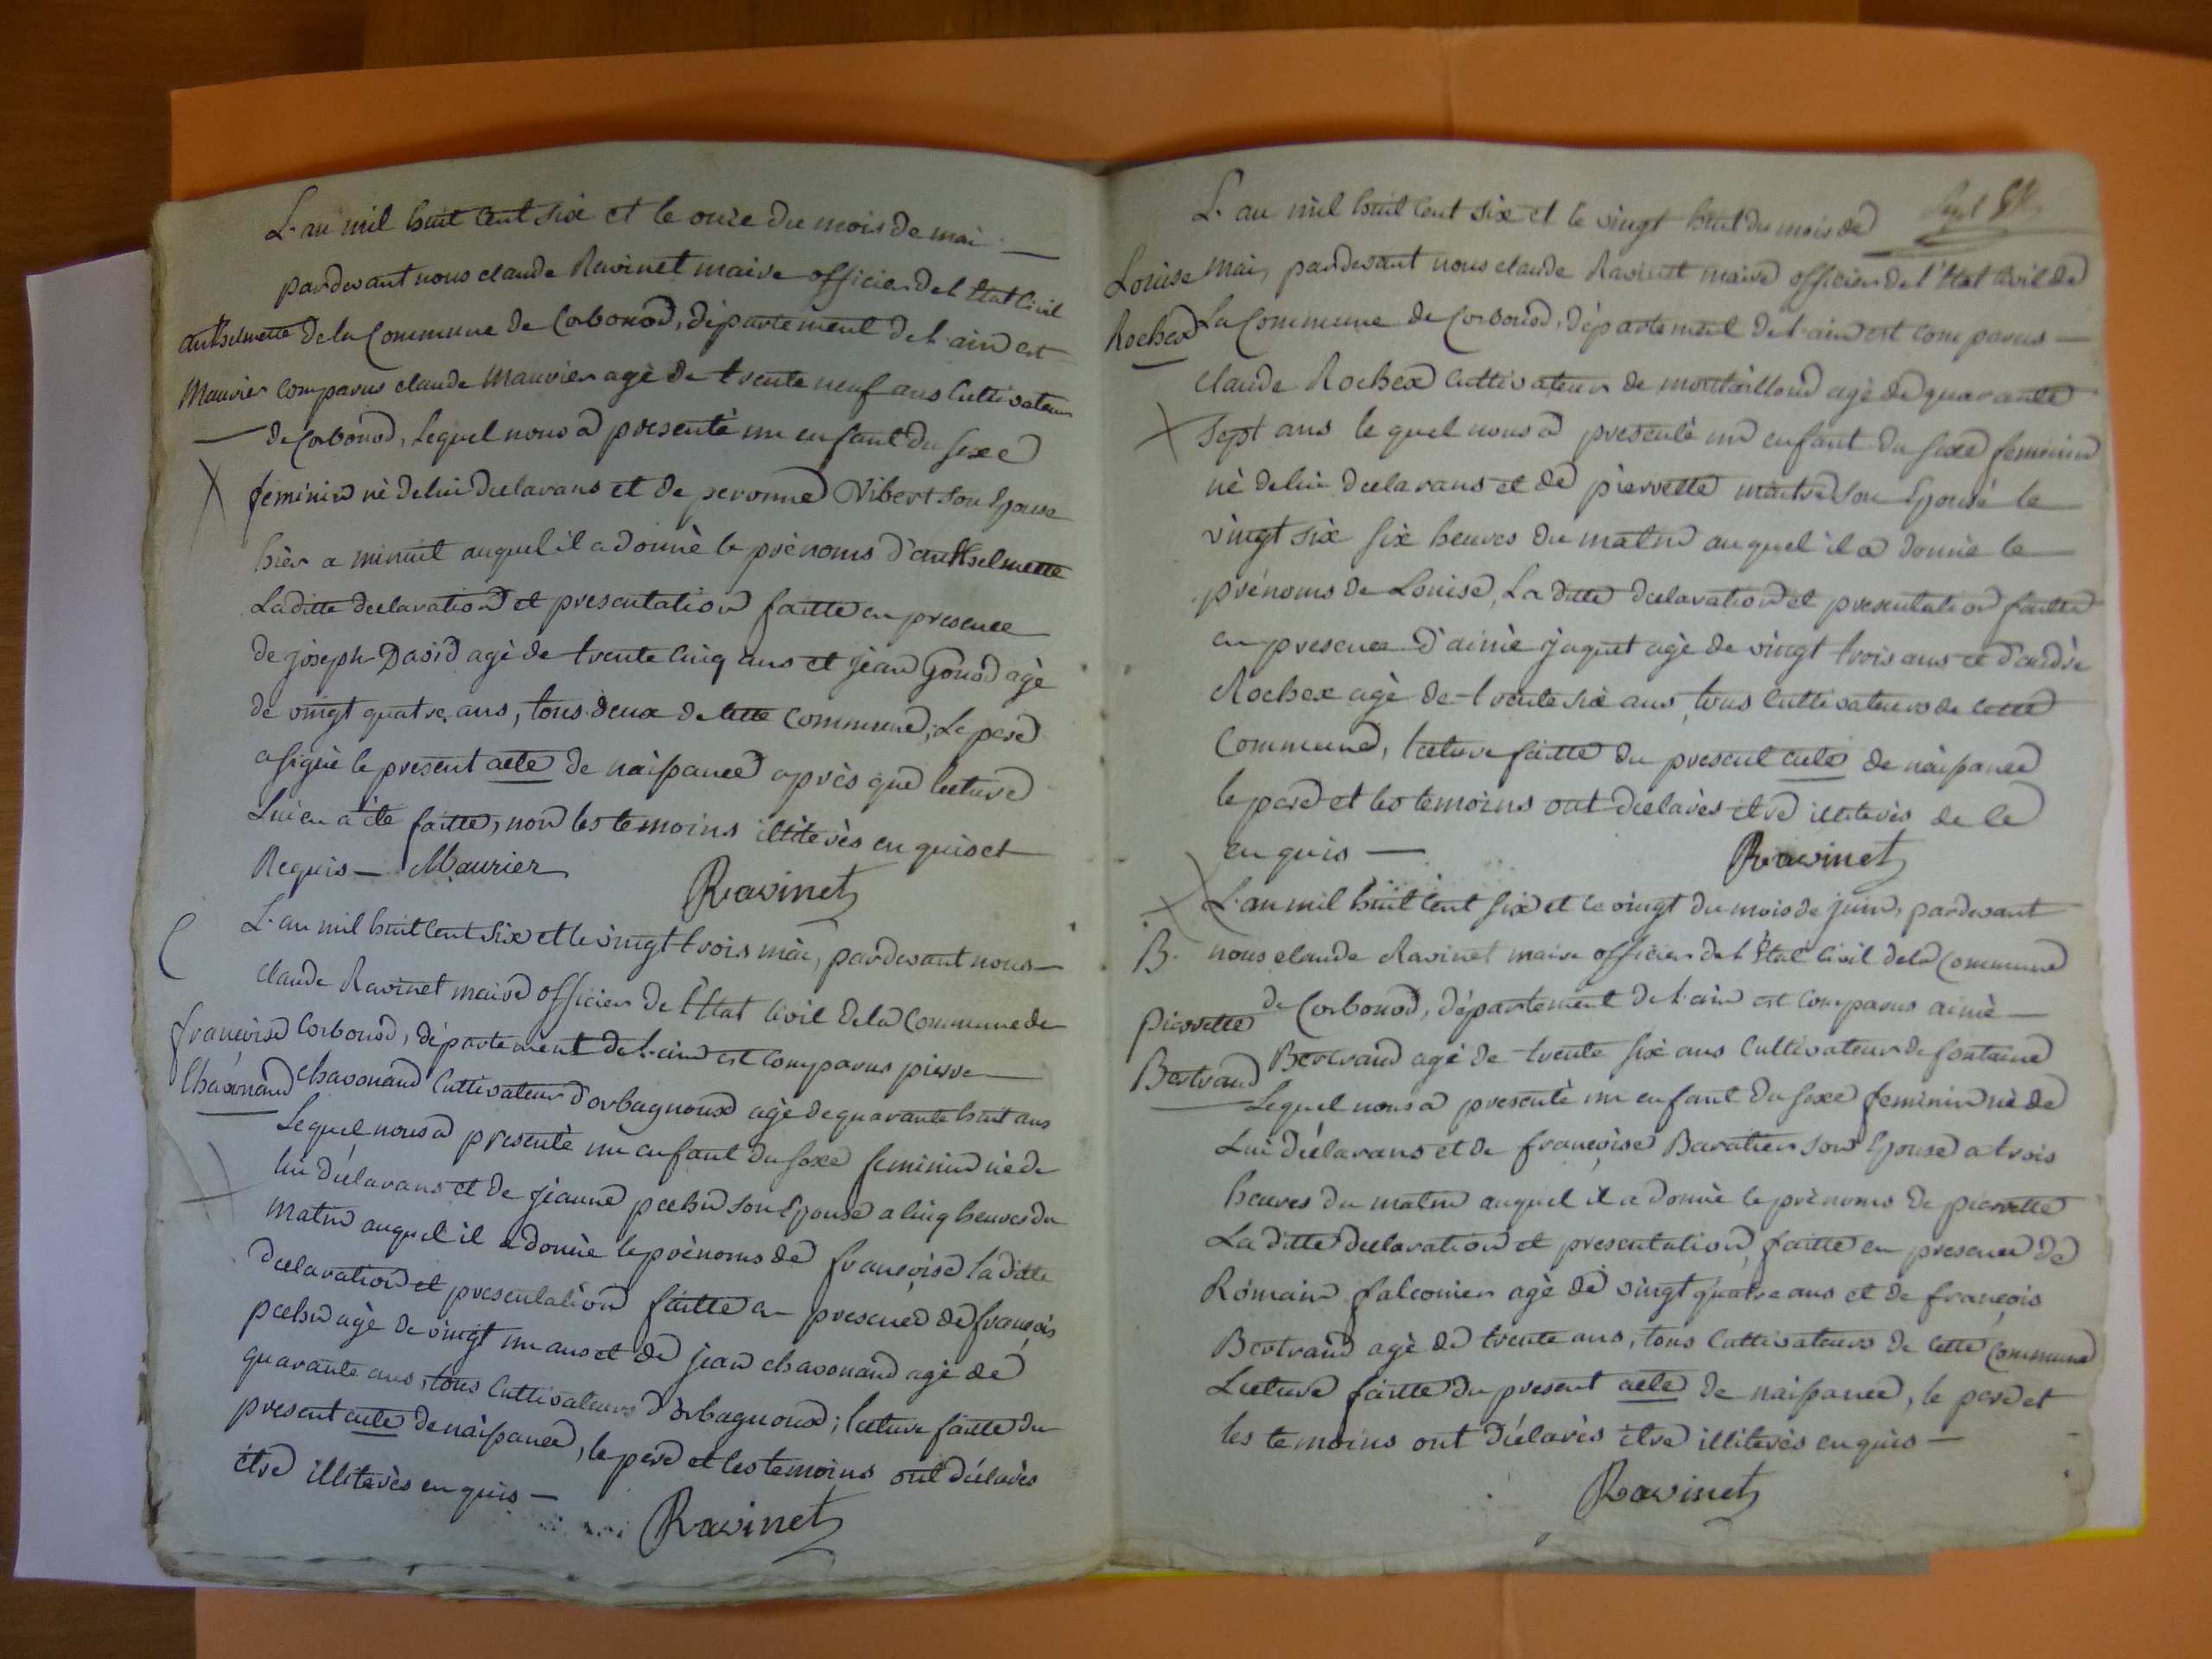 L'an mil huit cent six et le onze du mois de mai
pardevant nous claude Ravinet maire officier de l'Etat Civil
anthelmette de la Commune de Corbonod, département de l'ain est
Maurier comparus claude Maurier agé de trente neuf ans Cultivateur
de Corbonod, Lequel nous a presenté un enfant du sexe
feminin né de lui declarans et de peronne Vibert son Epouse
hier a minuit auquel il a donné le prénoms d'anthelmette
La ditte declaration et presentation faitte en presence
de joseph David agé de trente cinq ans et jean Gonod agé
de vingt quatre ans, tous deux de cette commune, Le pere
a signé le present acte de naissance après que lecture
Lui en a été faitte, non les temoins illiterés enquis et
Requis — Maurier
Ravinet
L'an mil huit cent six et le vingt trois mai, pardevant nous
claude Ravinet maire officier de l'Etat Civil de la Commune de
françoise Corbonod, département de l'ain est comparus pierre
Chavonand chavonand Cultivateur d'orbagnoux agé de quarante huit ans
Lequel nous a presenté un enfant du sexe feminin né de
lui déclarans et de jeanne pochin son Epouse a cinq heures du
matin auquel il a donné le prénoms de françoise la ditte
declaration et presentation faitte en presence de françois
pochin agé de vingt un ans et de jean chavonand agé de
quarante ans, tous Cultivateurs d'orbagnoux; lecture faitte du
present acte de naissance, le pere et les temoins ont déclarés
être illiterés enquis —
Ravinet
L'an mil huit cent six et le vingt huit du mois de
Louise mai, pardevant nous claude Ravinet maire officier de l'Etat Civil de
Rochex La Commune de Corbonod, département de l'ain est comparus —
claude Rochex Cultivateur de montaillou agé de quarante
sept ans lequel nous a presenté un enfant du sexe feminin
né de lui declarans et de pierrette maitre son Epouse le
vingt six six heures du matin auquel il a donné le
prénoms de Louise, La ditte declaration et presentation faitte
en presence d'aimé jaquet agé de vingt trois ans et d'andré
Rochex agé de trente six ans, tous Cultivateurs de cette
Commune, lecture faitte du present acte de naissance
le pere et les temoins ont declarés être illiterés de ce
enquis —
Ravinet
L'an mil huit cent six et le vingt du mois de juin, pardevant
B. nous claude Ravinet maire officier de l'Etat Civil de la Commune
de Corbonod, département de l'ain est comparus aimé —
pierrette
Bertrand Bertrand agé de trente six ans Cultivateur de fontaine
Lequel nous a presenté un enfant du sexe feminin né de
Lui déclarans et de françoise Baratier son Epouse a trois
heures du matin auquel il a donné le prénoms de pierrette
La ditte declaration et presentation faitte en presence de
Romain falconier agé de vingt quatre ans et de françois
Bertrand agé de trente ans, tous Cultivateurs de cette Commune
Lecture faitte du present acte de naissance, le pere et
les temoins ont déclarés être illiterés enquis —
Ravinet